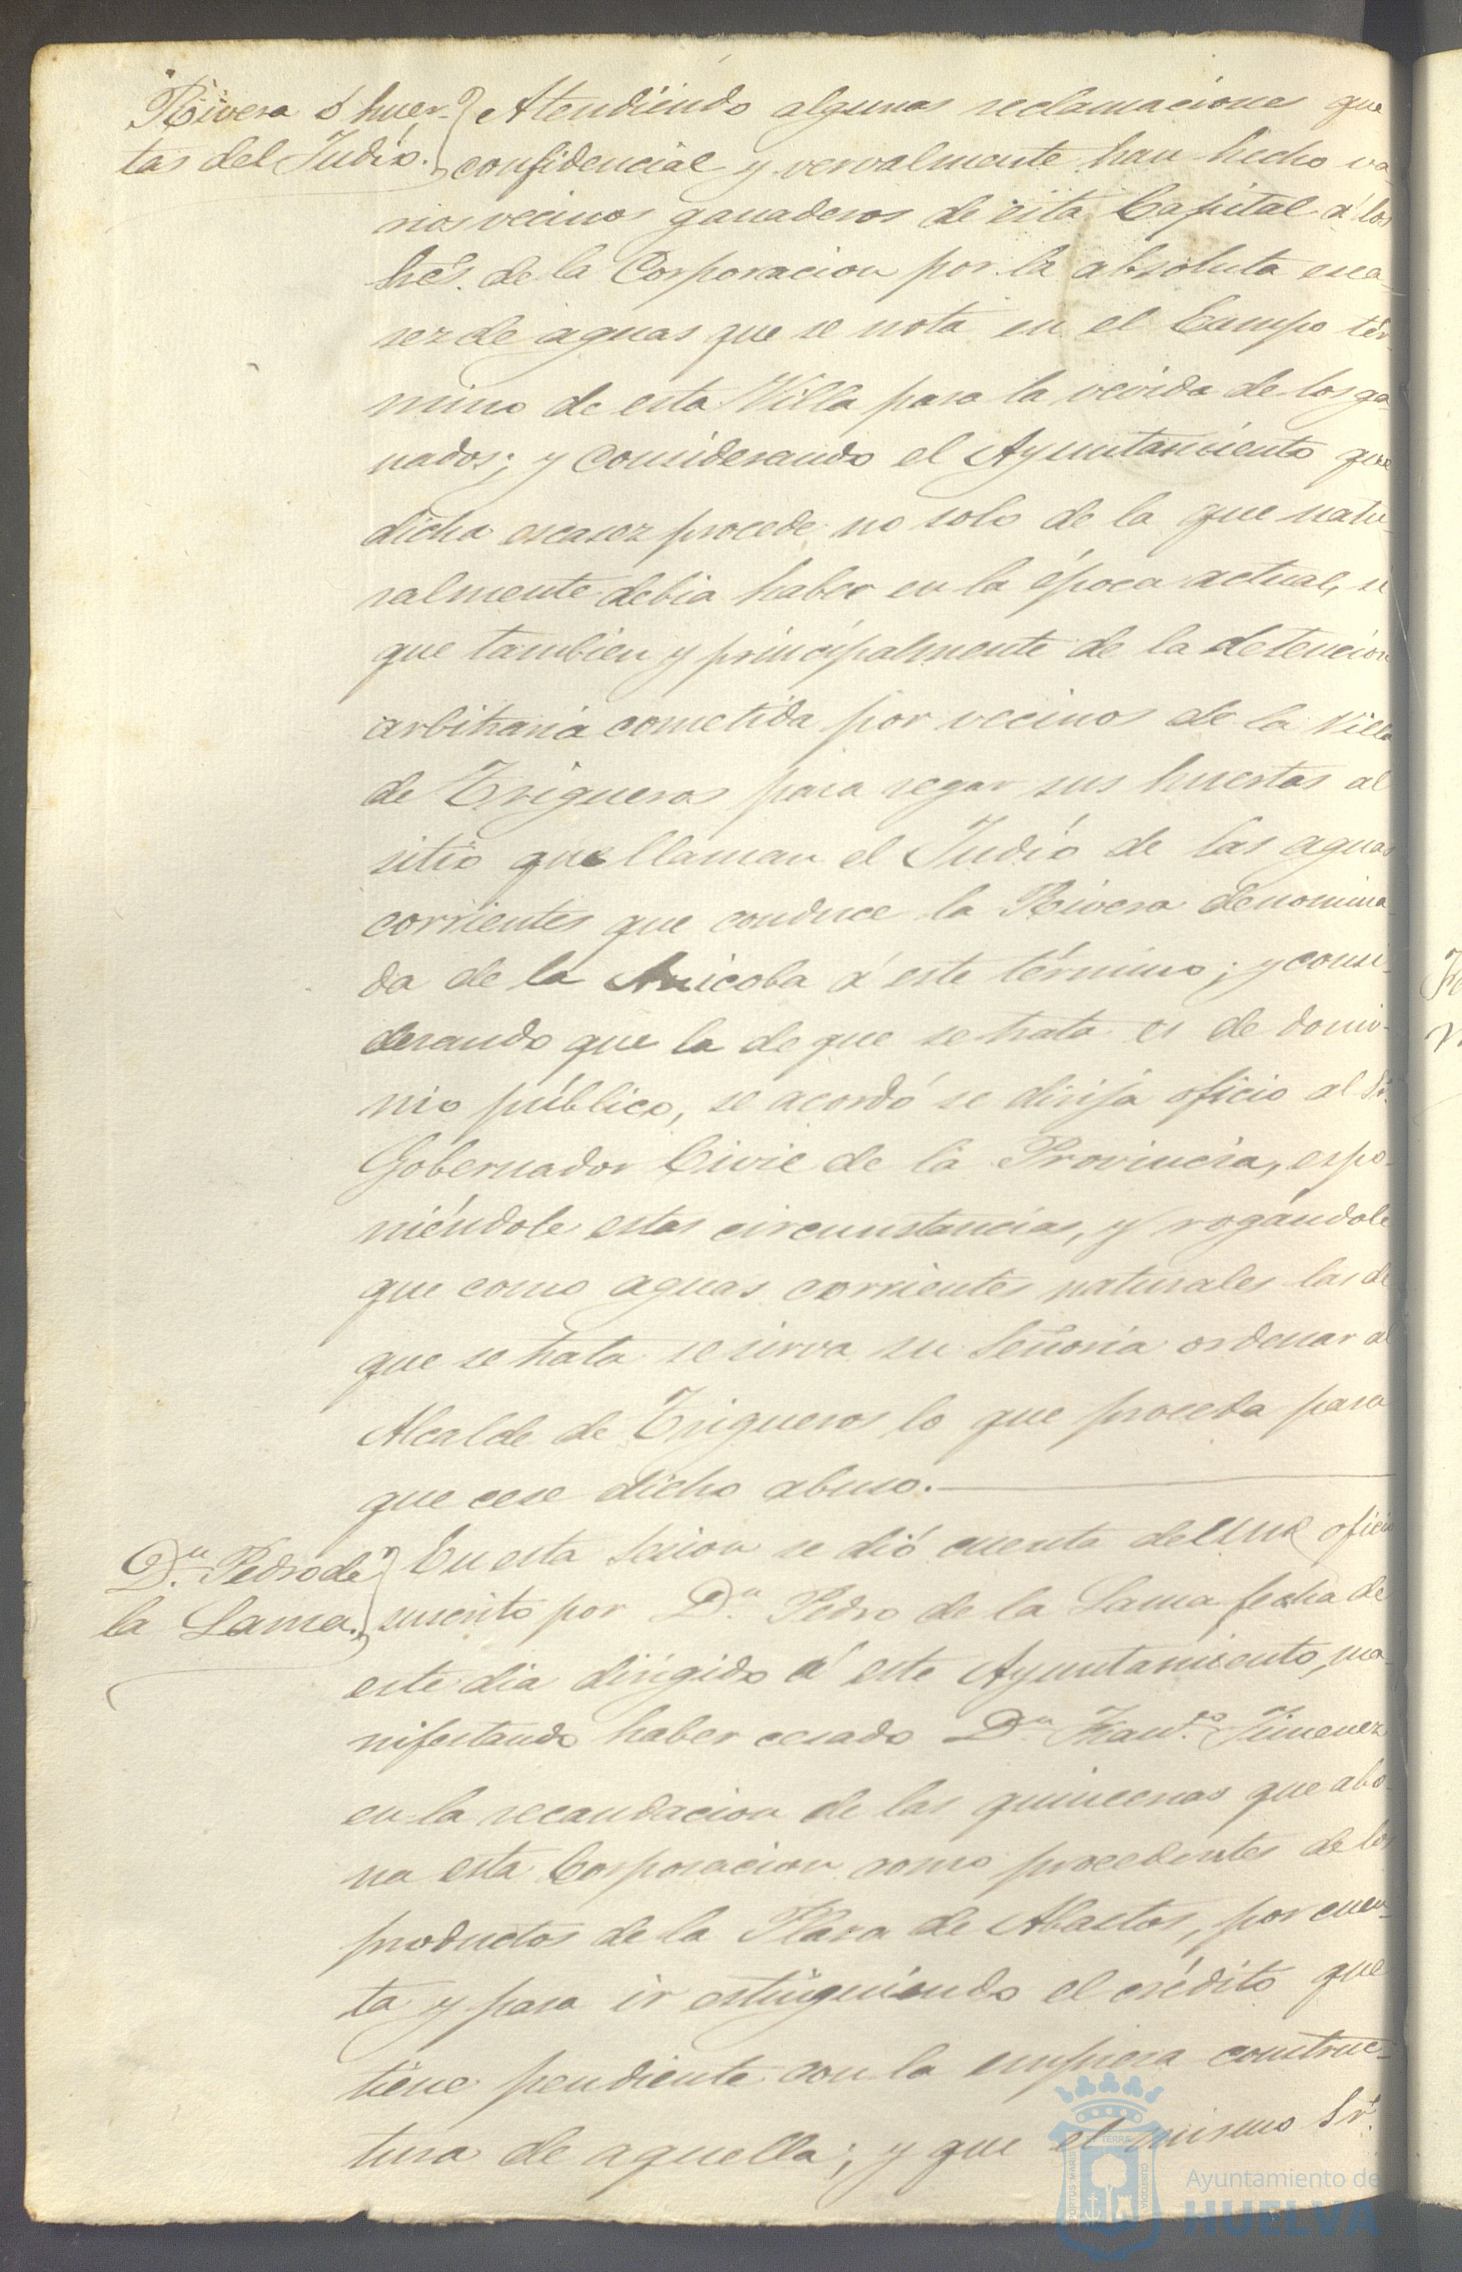 Rivera ó huer-
tas del Judío.
Atendiendo algunas reclamaciones que
confidencial y vervalmente han hecho va-
rios vecinos ganaderos de esta Capital á los
Sres. de la Corporacion por la absoluta esca-
sez de aguas que se nota en el Campo tér-
mino de esta Villa para la vevida de los ga-
nados; y considerando el Ayuntamiento que
dicha escasez procede no solo de la que natu-
ralmente debia haber en la época actual, si
que tambien y principalmente de la detencion
arbitraria cometida por vecinos de la Villa
de Trigueros para regar sus huertas al
sitio que llaman el Judío de las aguas
corrientes que conduce la Rivera denomina-
da de la Anicoba á este término; y consi-
derando que la de que se trata es de domi-
nio público, se acordó se dirija oficio al Sr.
Gobernador Civil de la Provincia, espo-
niéndole estas circunstancias, y rogándole
que como aguas corrientes naturales las de
que se trata se sirva su Señoria ordenar al
Alcalde de Trigueros lo que proceda para
que cese dicho abuso.
Dn. Pedro de
la Lama.
En esta sesion se dió cuenta del oficio
suscrito por Dn. Pedro de la Lama fecha de
este dia dirigido á este Ayuntamiento, ma-
nifestando haber cesado Dn. Franco. Jimenez
en la recaudacion de las quincenas que abo-
na esta Corporacion como procedentes de los
productos de la Plaza de Abastos, por cuen-
ta y para ir estinguiendo el crédito que
tiene pendiente con la empresa construc-
tura de aquella; y que el mismo Sr.
Ayuntamiento de
HUELVA